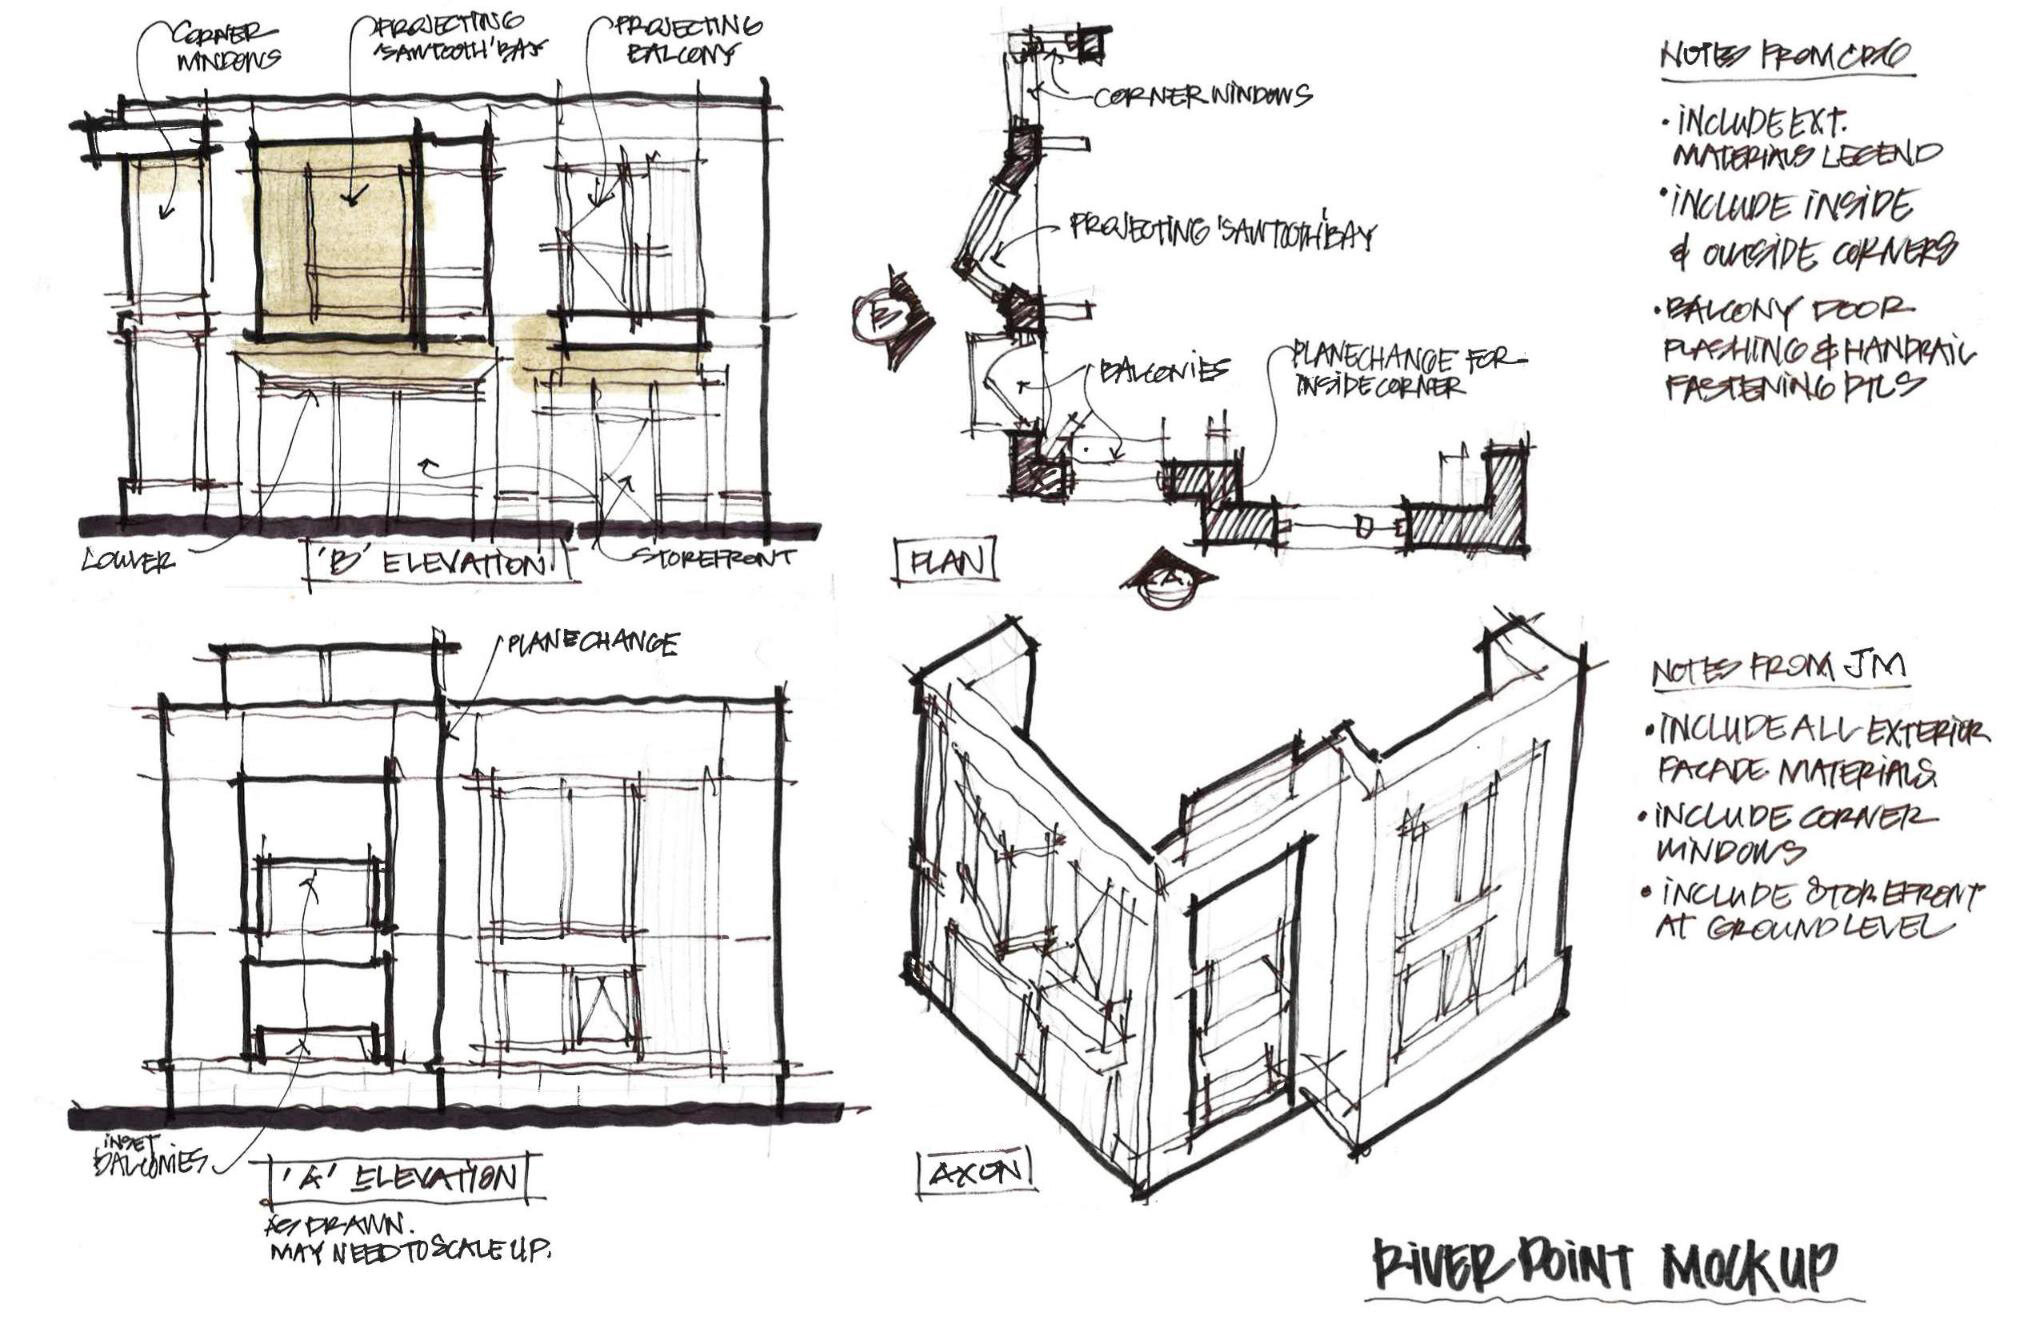 CORNER
WINDOWS
PROJECTING
'SAWTOOTH' BAY
PROJECTING
BALCONY
LOUVER
'B' ELEVATION
STOREFRONT
CORNER WINDOWS
PROJECTING 'SAWTOOTH' BAY
B
BALCONIES
PLANE CHANGE FOR
INSIDE CORNER
PLAN
A
NOTES FROM
• INCLUDE EXT.
MATERIALS LEGEND
• INCLUDE INSIDE
& OUTSIDE CORNERS
• BALCONY DOOR
FLASHING & HANDRAIL
FASTENING DTLS
PLANE CHANGE
INSET
BALCONIES
'A' ELEVATION
AS DRAWN.
MAY NEED TO SCALE UP.
AXON
NOTES FROM JM
• INCLUDE ALL EXTERIOR
FACADE MATERIALS.
• INCLUDE CORNER
WINDOWS
• INCLUDE STOREFRONT
AT GROUND LEVEL
RIVER POINT MOCKUP